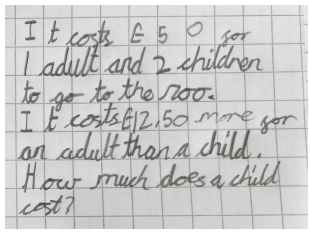 It costs £50 for
1 adult and 2 children
to go to the zoo.
It costs £12.50 more for
an adult than a child.
How much does a child
cost?